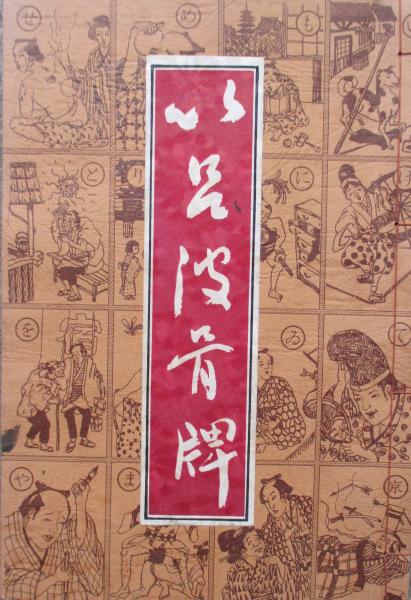 以呂波骨牌
も
め
せ
に
り
と
て
ゐ
を
京
ま
や